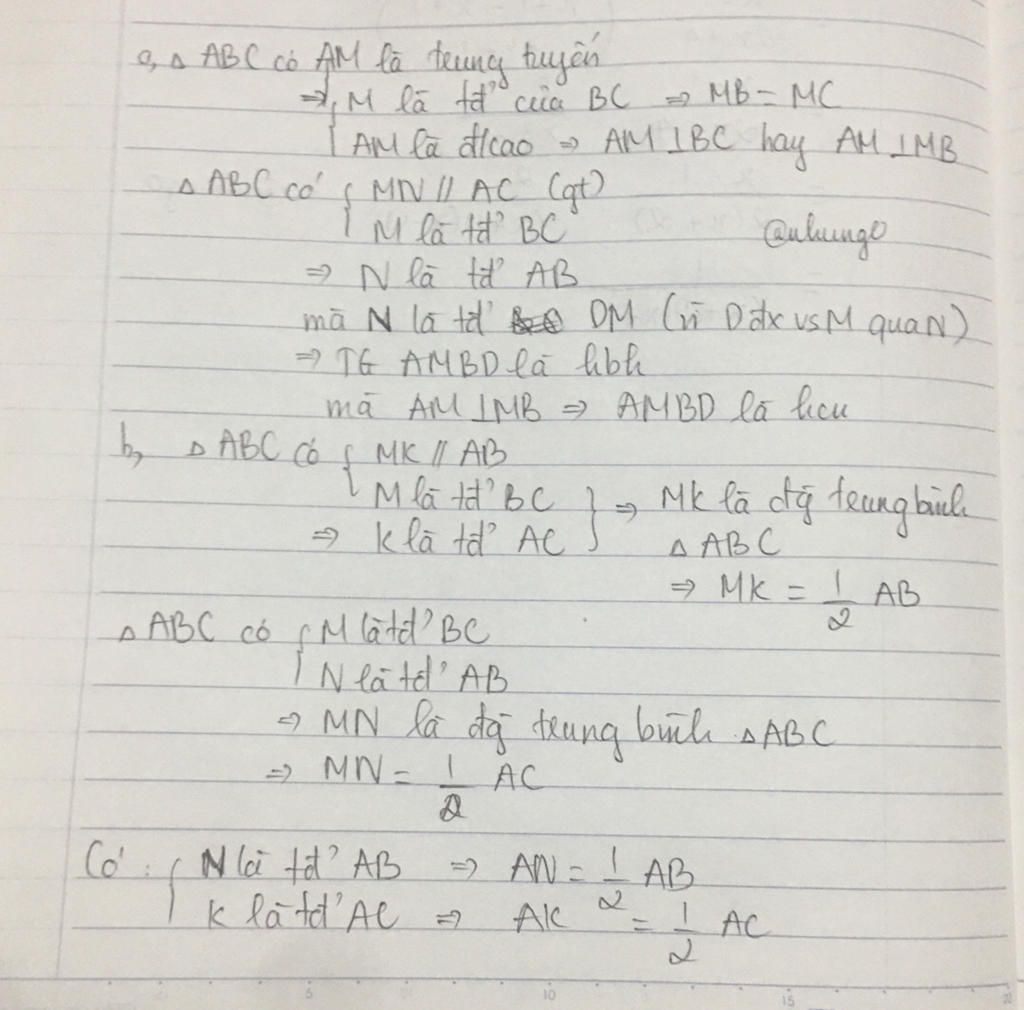 a, △ ABC có AM là trung tuyến
⇒ { M là tđ' của BC ⇒ MB = MC
AM là đ/cao ⇒ AM ⊥ BC hay AM ⊥ MB
△ ABC có { MN // AC (gt)
M là tđ' BC @nhung0
⇒ N là tđ' AB
mà N là tđ' DM (vì D đx vs M qua N)
⇒ TG AMBD là hbh
mà AM ⊥ MB ⇒ AMBD là hcn
b, △ ABC có { MK // AB
M là tđ' BC } ⇒ MK là đg trung bình
⇒ K là tđ' AC △ ABC
⇒ MK = 1/2 AB
△ ABC có { M là tđ' BC
N là tđ' AB
⇒ MN là đg trung bình △ ABC
⇒ MN = 1/2 AC
Có : { N là tđ' AB ⇒ AN = 1/2 AB
K là tđ' AC ⇒ AK = 1/2 AC
5 10 15 20